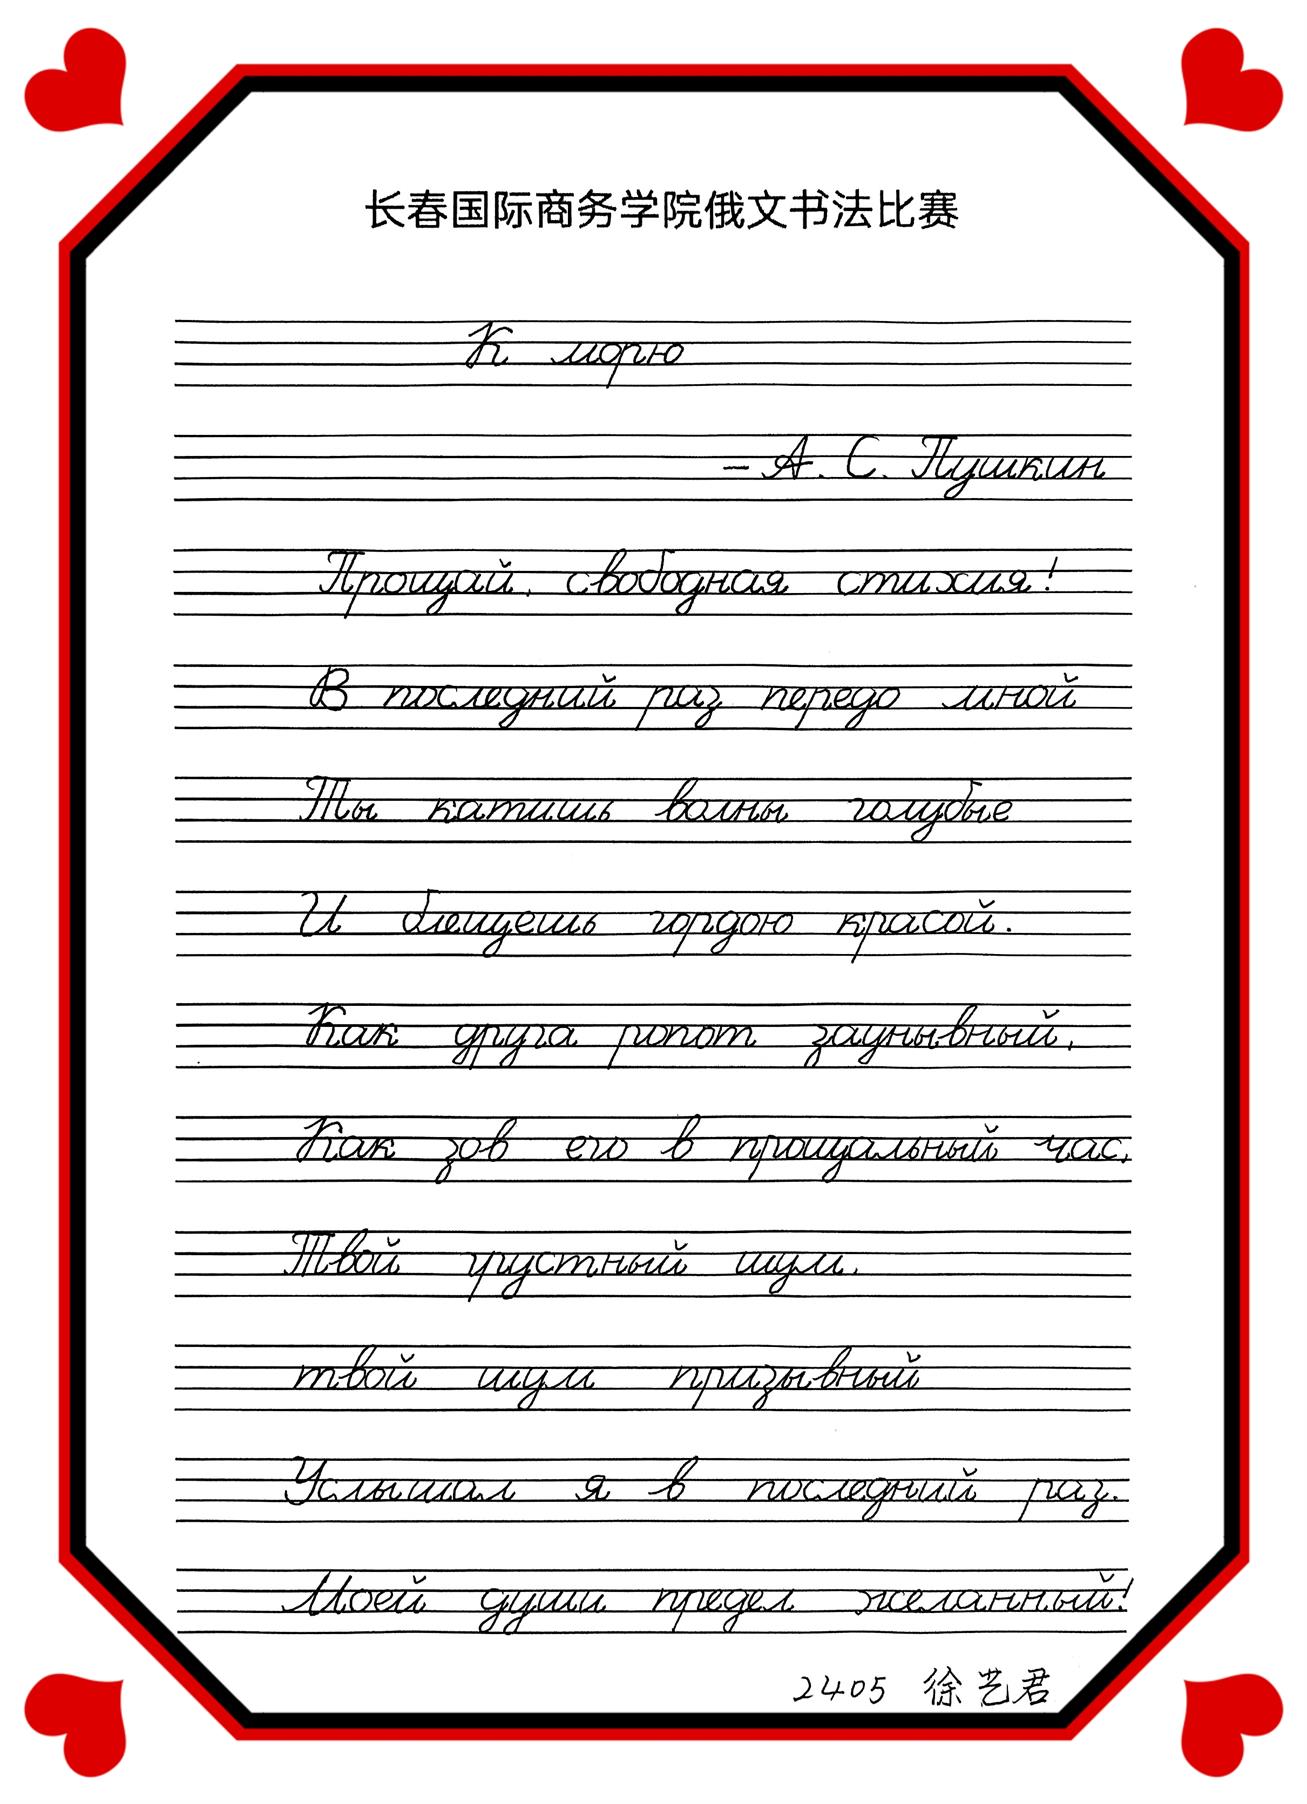 长春国际商务学院俄文书法比赛
К морю
– А. С. Пушкин
Прощай, свободная стихия!
В последний раз передо мной
Ты катишь волны голубые
И блещешь гордою красой.
Как друга ропот заунывный,
Как зов его в прощальный час,
Твой грустный шум,
твой шум призывный
Услышал я в последний раз.
Моей души предел желанный!
2405 徐艺君